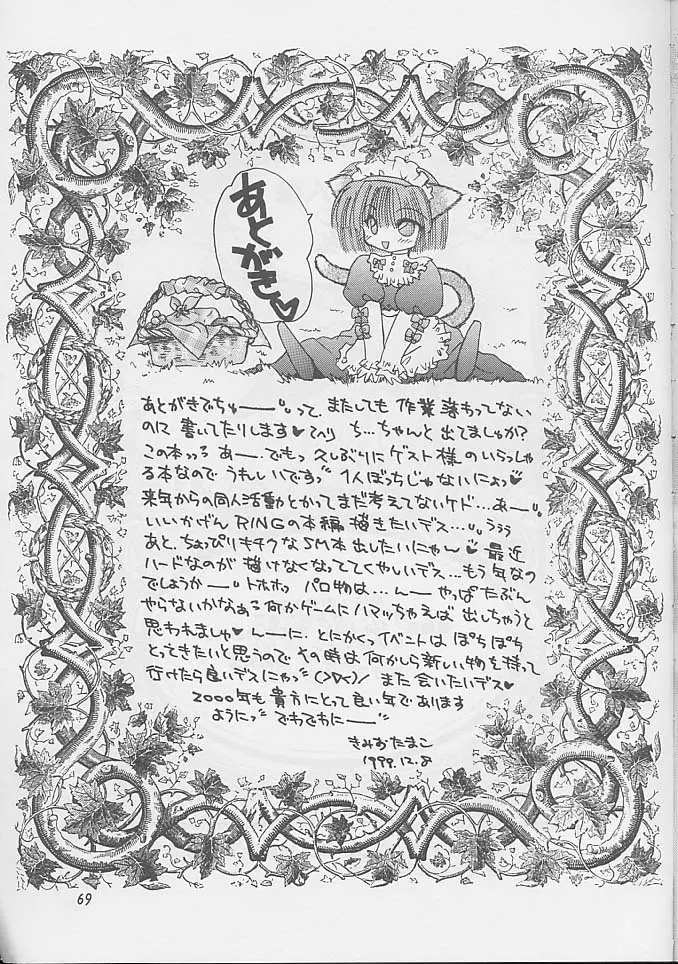 あとがき♡
あとがきでちゅー〜"。って、またしても 作業 落もってない
のに 書いてたりします♡てへり ち…ちゃんと 出てましゅか?
この本っっる あー、でもっ 久しぶりに ゲスト様 のいらっしゃ
る本なので うれしいですっ" 1人ぼっちじゃないにょっ♡
来年からの同人活動とかってまだ考えてないケド…あー"。
いいかげん RINGの本編 描きたいデス…。ううぅ
あと、ちょっぴりキチクなSM本出したいにゃ〜♡ 最近
ハードなのが 描けなくなっててくやしいデス…もう 気なの
でしょうかー" トホホっ パロ物は…んー やっぱ たぶん
やらないかなぁる 何かゲームに ハマッちゃえば 出しちゃうと
思われましゅ♡ んーに、とにかくっ イベントは ぽちぽち
とってきたいと思うので その時は 何かしら 新しい物を 持って
行けたら良いデスにゃっ" (>▽<)/ また 会いたいデス♡
2000年も 貴方にとって 良い年であります
ように。" でわでわにー"
きみおたまこ
1999.12.8
69